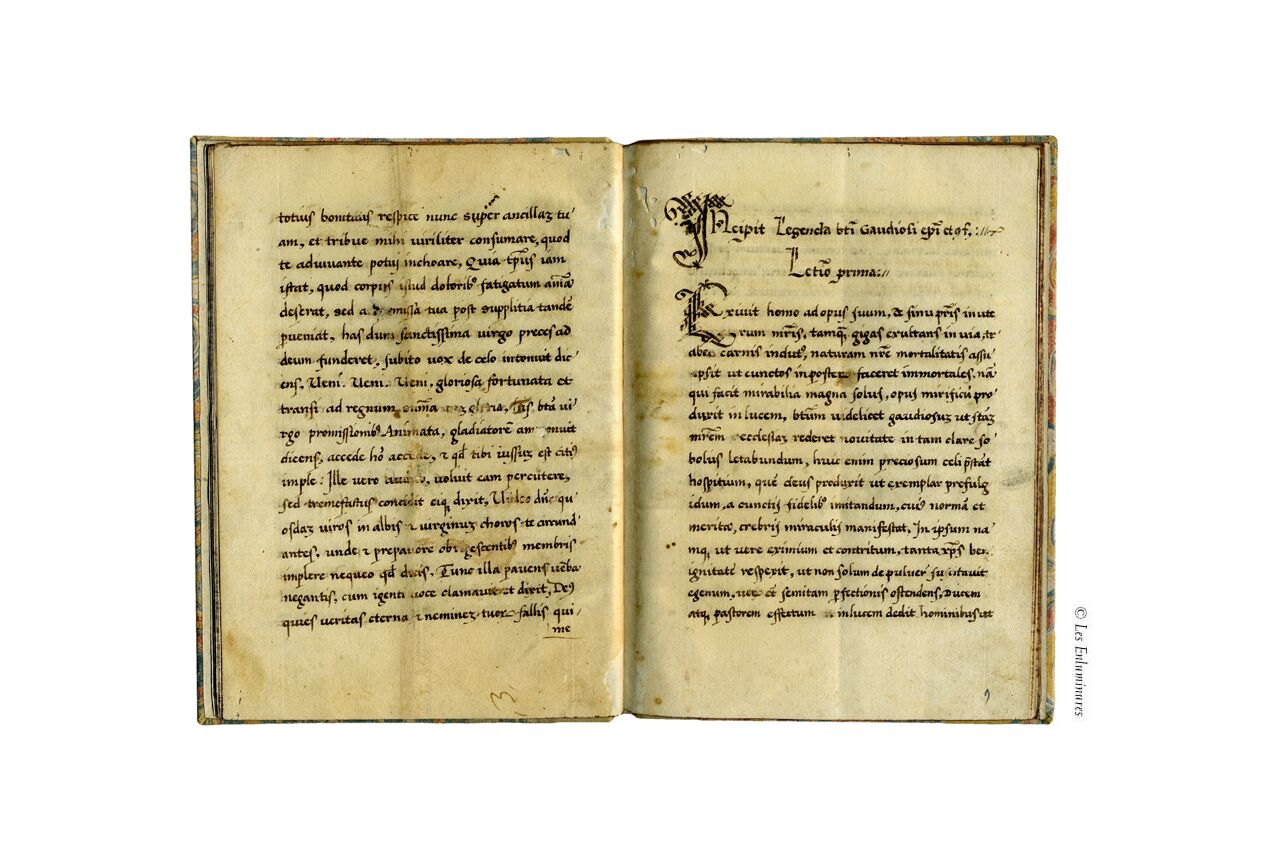 totius bonitatis respice nunc super ancillaz tu
am, et tribue mihi viriliter consumare, quod
te adiuvante potui inchoare, Quia tp̃us iam
istat, quod corpus istud dolorib⁹ fatigatum aĩam
deserat, sed a tua post supplitia tandẽ
ꝑveniat, has dum sanctissima virgo preces ad
deum funderet, subito vox de celo intonuit dic
ens, Ueni. Ueni. Ueni, gloriosa fortunata et
transi ad regnum btã vi
rgo promissionib⁹ Animata, gladiatorẽ
dicens, accede et qđ tibi iussuz est citi⁹
imple: Ille vero voluit eam percutere,
sed tremefactus concidit eiq₃ dixit, dñe qu
osdaz viros in albis et virginuz choros te circund
antes, unde et membris
implere nequeo qđ dicis. Tunc illa pavens vẽba
negantis, cum igenti voce clamavit et dixit, De⁹
qui es veritas eterna et neminez fallis qui
me
3
INcipit Legenda bti Gaudiosi epĩ et ꝯf,
Letiõ prima:
Exivit homo ad opus suum, de sinu pr̃is in ute
rum mr̃is, tamq₃ gigas exultans in via, tr
abea carnis indut⁹, naturam nr̃e mortalitatis assu
psit ut cunctos in faceret immortales, nã
qui facit mirabilia magna solus, opus mirificũ pro
duxit in lucem, btũm videlicet gaudiosuz ut stãz
mr̃em ecclesiaz rederet novitate in tam clare so
bolus letabundum, huic enim preciosum celi p̃stãt
hospitium, quẽ deus produxit ut exemplar prefulg
idum, a cunctis fidelib⁹ imitandum, cui⁹ normã et
merita, crebris miraculis manifestat. In ipsum na
mq₃ ut vere eximium et contritum, tanta xp̃s ben
ignitate respexit, ut non solum de pulvere
egenum, semitam ꝑfectionis ostendens, Ducem
atq₃ pastorem effectum in lucem dedit hominibus ut
9
© Les Enluminures